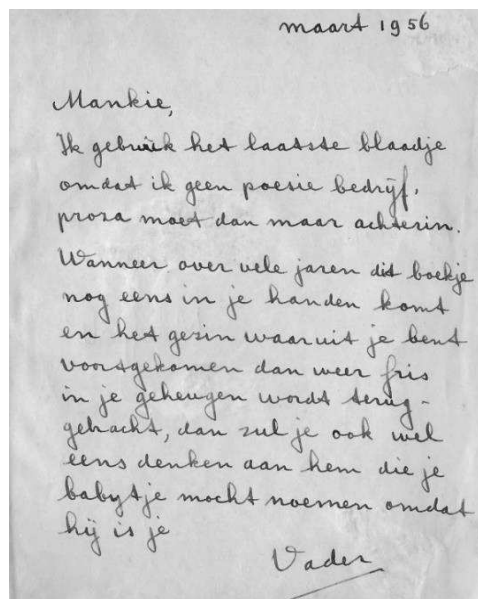 maart 1956
Mankie,
Ik gebruik het laatste blaadje
omdat ik geen poesie bedrijf,
proza moet dan maar achterin.
Wanneer over vele jaren dit boekje
nog eens in je handen komt
en het gezin waaruit je bent
voortgekomen dan weer fris
in je geheugen wordt terug-
gebracht, dan zul je ook wel
eens denken aan hem die je
babytje mocht noemen omdat
hij is je
Vader